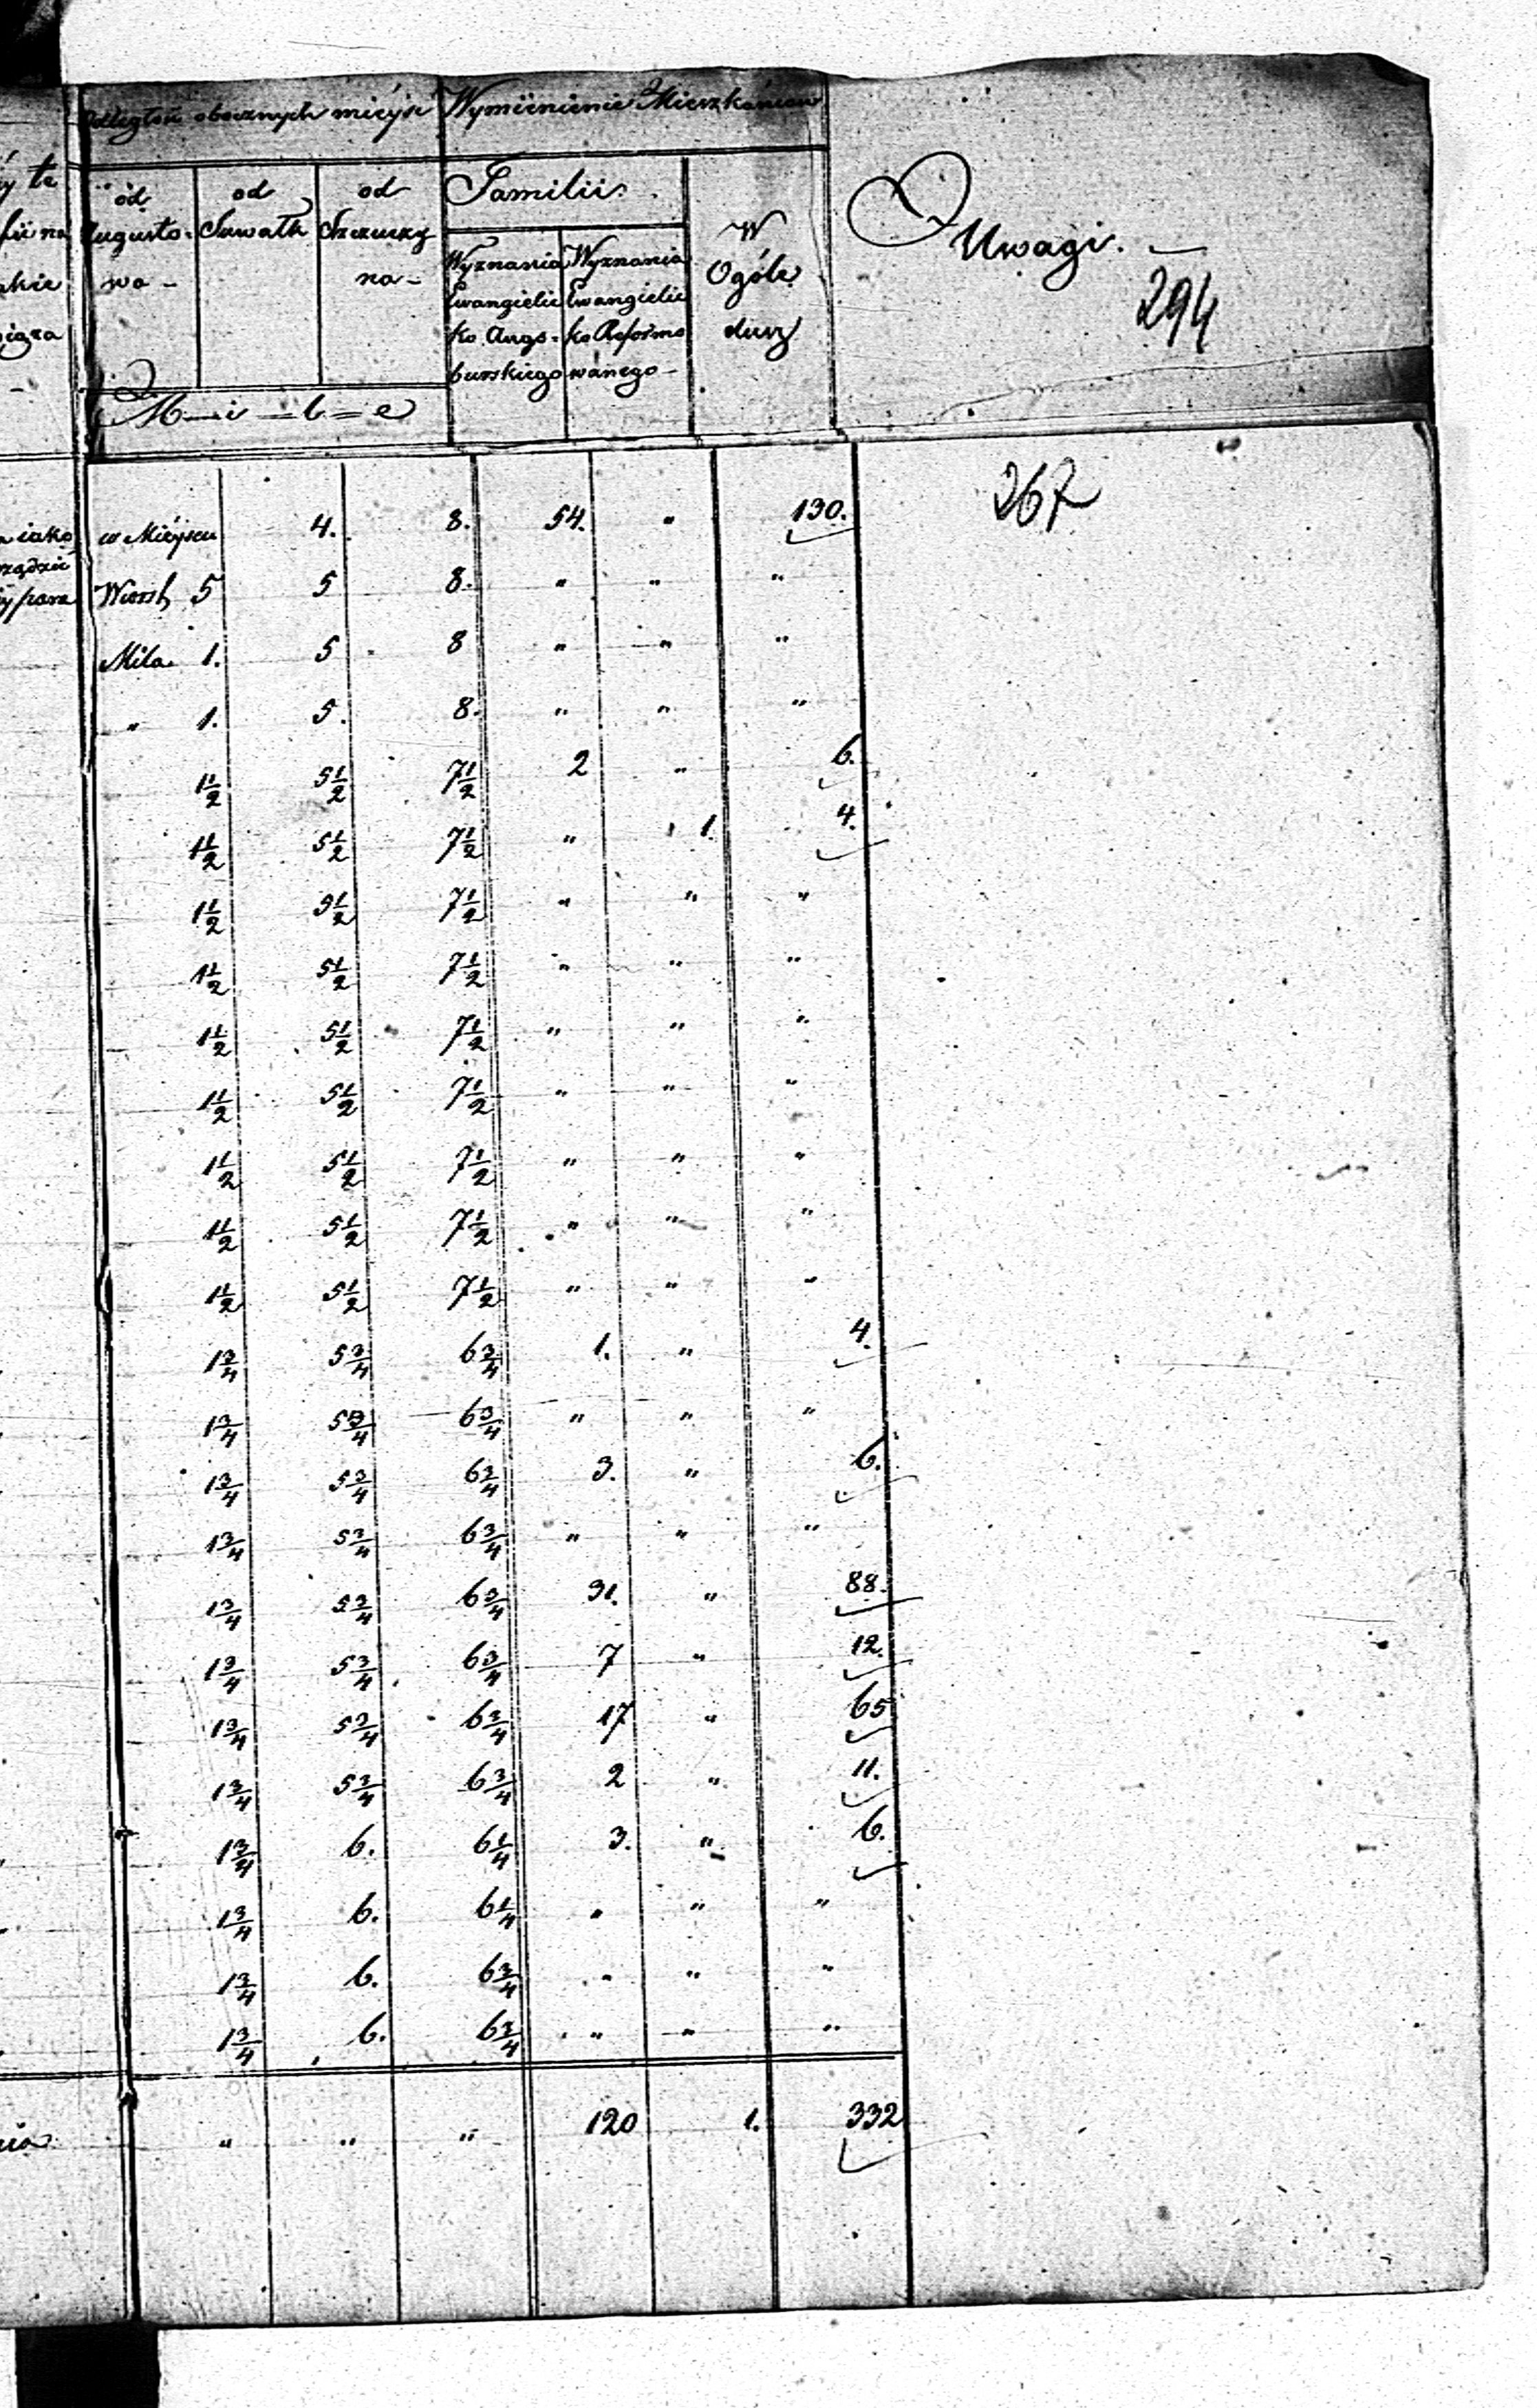 Odległość obocznych miéysc Wymiénienie Mieszkańców
od Augusto=wa - od Suwałk od Szczuczy na - Familii. W Ogóle dusz Uwagi. -
Wyznania Ewangielicko Augs=burskiego Wyznania Ewangielicko Reformowanego -
294
M - i - l = e
267
iako w Miéyscu 4. 8. 54. " 130.
Wiorst 5 5 8. " " "
Mila 1. 5 8 " " "
" 1. 5. 8. " " "
1 1/2 5 1/2 7 1/2 2 " 6.
1 1/2 5 1/2 7 1/2 " 1. 4.
1 1/2 5 1/2 7 1/2 " " "
1 1/2 5 1/2 7 1/2 " " "
1 1/2 5 1/2 7 1/2 " " "
1 1/2 5 1/2 7 1/2 " " "
1 1/2 5 1/2 7 1/2 " " "
1 1/2 5 1/2 7 1/2 " " "
1 1/2 5 1/2 7 1/2 " " "
1 3/4 5 3/4 6 3/4 1. " 4.
1 3/4 5 3/4 6 3/4 " " "
1 3/4 5 3/4 6 3/4 3. " 6.
1 3/4 5 3/4 6 3/4 " " "
1 3/4 5 3/4 6 3/4 31. " 88.
1 3/4 5 3/4 6 3/4 7 " 12.
1 3/4 5 3/4 6 3/4 17 " 65
1 3/4 5 3/4 6 3/4 2 " 11.
1 3/4 6. 6 1/4 3. " 6.
1 3/4 6. 6 1/4 " " "
1 3/4 6. 6 3/4 " " "
1 3/4 6. 6 3/4 " " "
" " " 120 1. 332